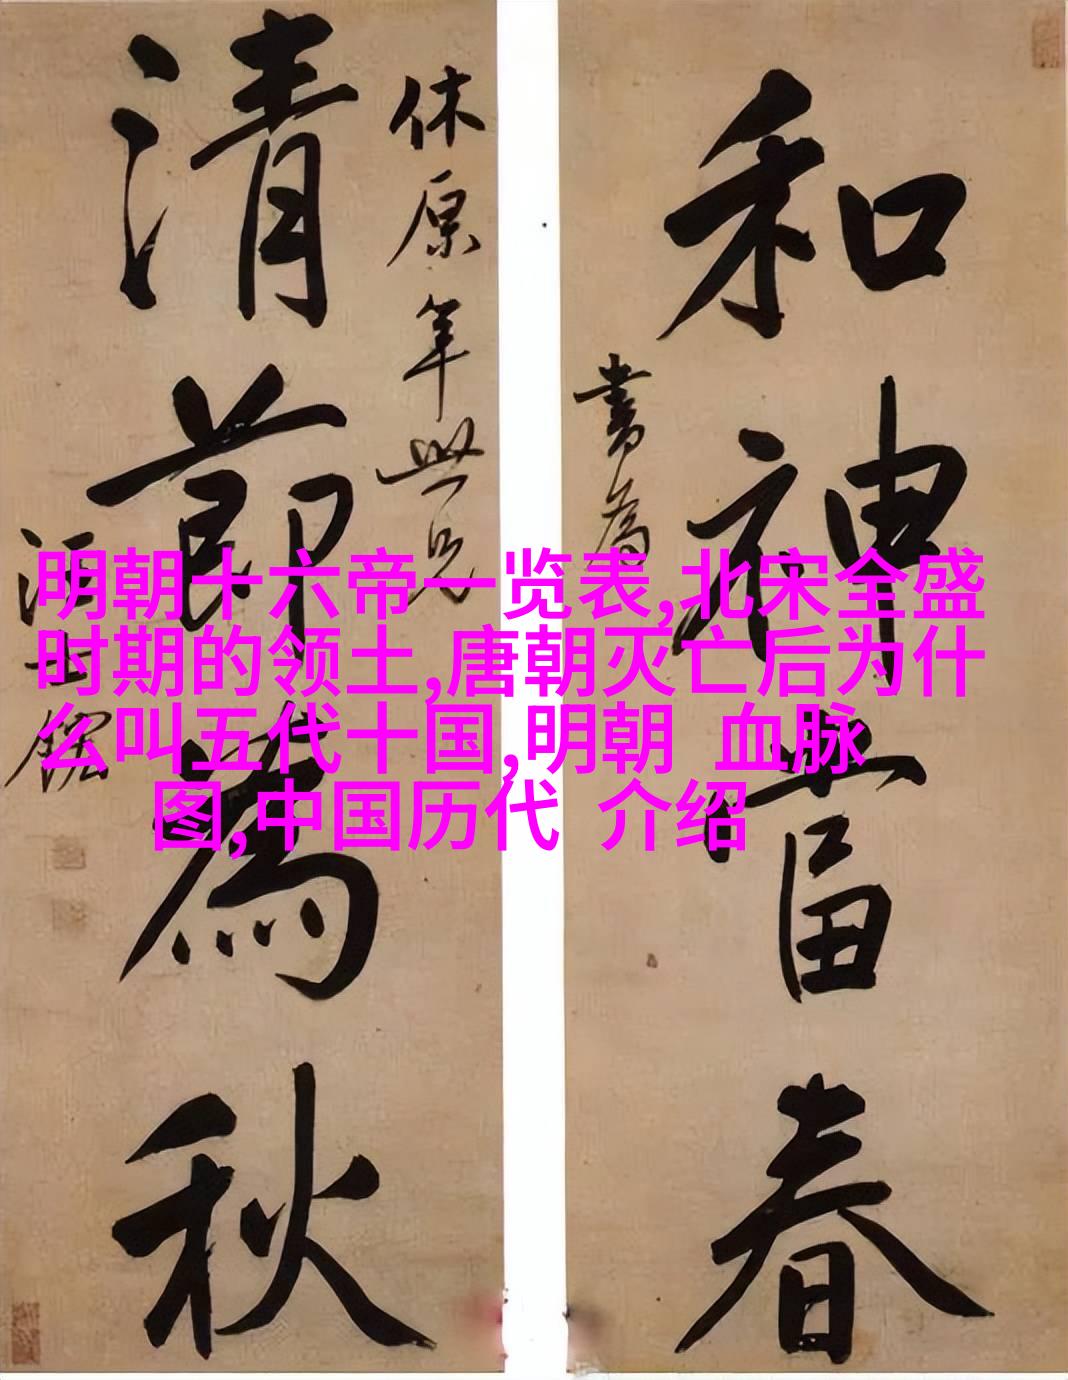 和神當春
書為
休原年世兄
清節為秋
汪士鋐
明朝十六帝一览表,北宋全盛
时期的领土,唐朝灭亡后为什
么叫五代十国,明朝 血脉
图,中国历代 介绍